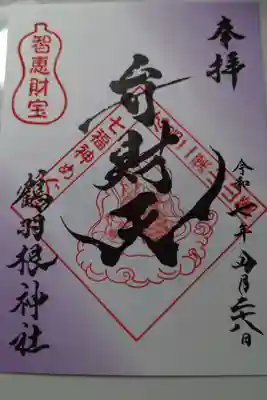 奉拝
令和
年
月
八日
弁財天
七福神めぐ
智恵財宝
鶴羽根神社